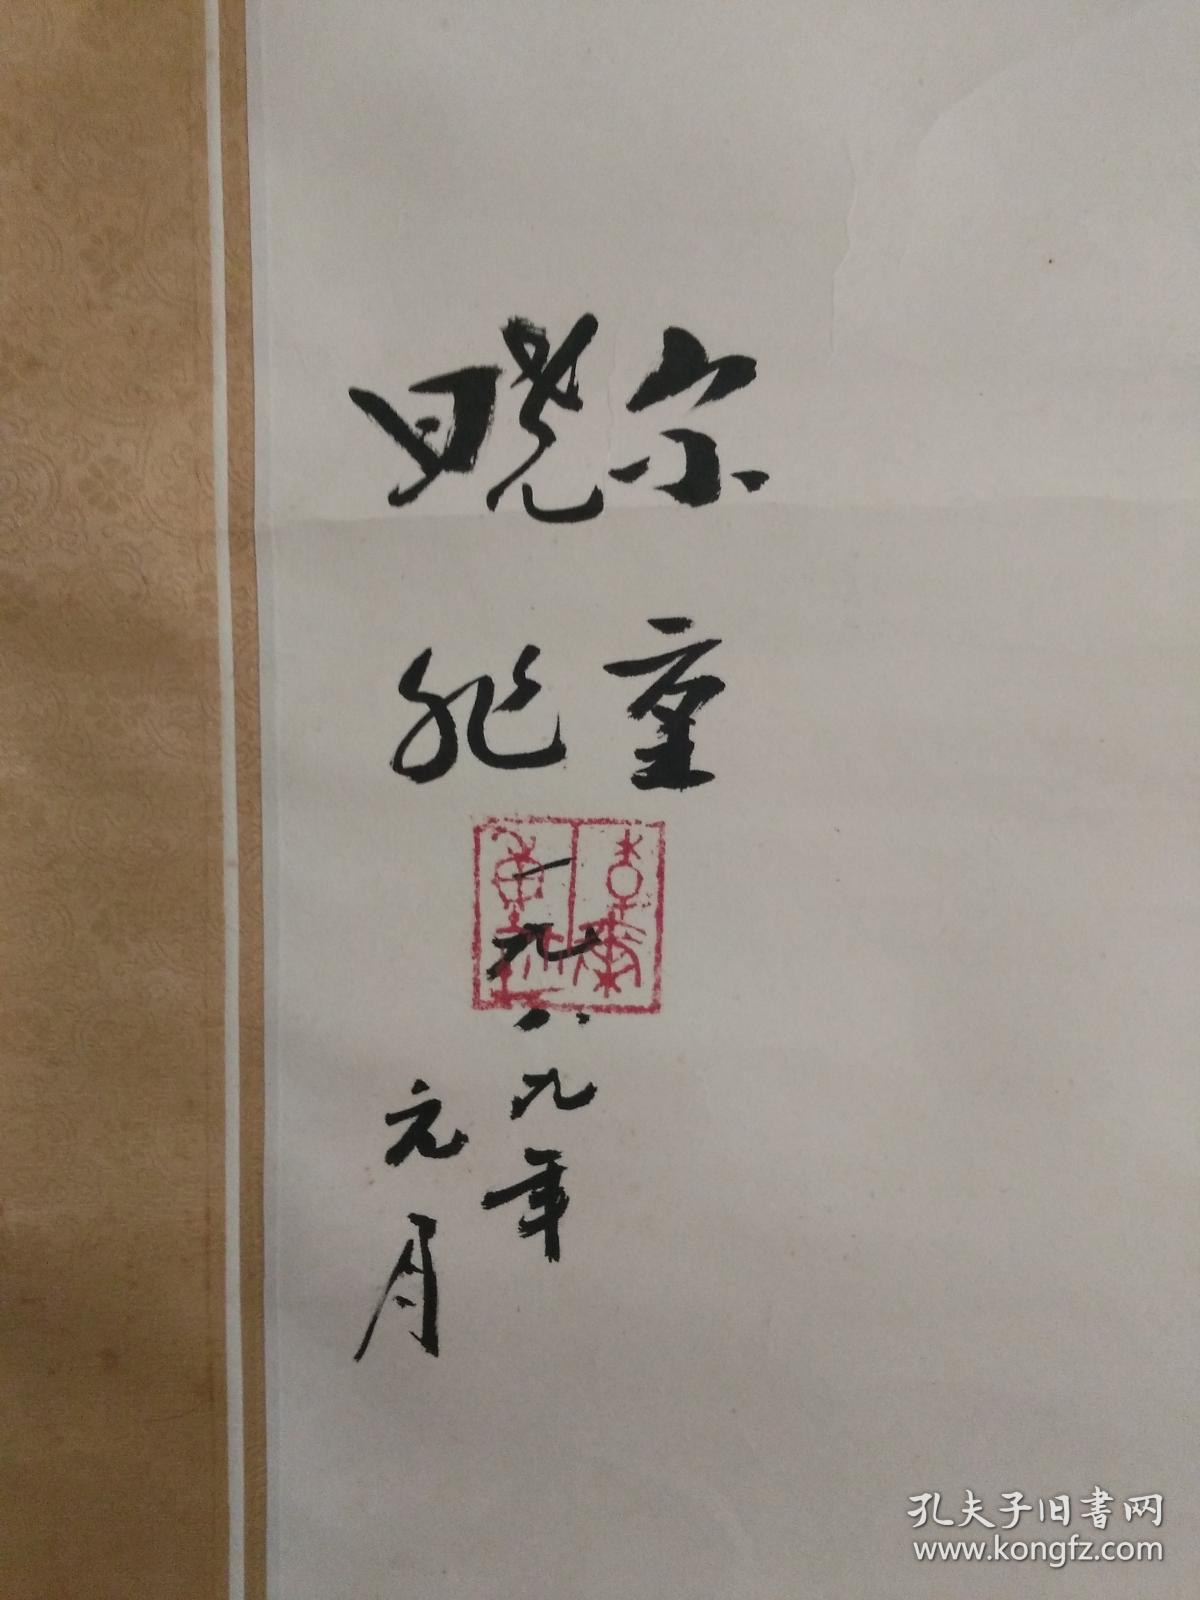 宗童
晓非
一九八九年
元月
孔夫子旧書网
www.kongfz.com